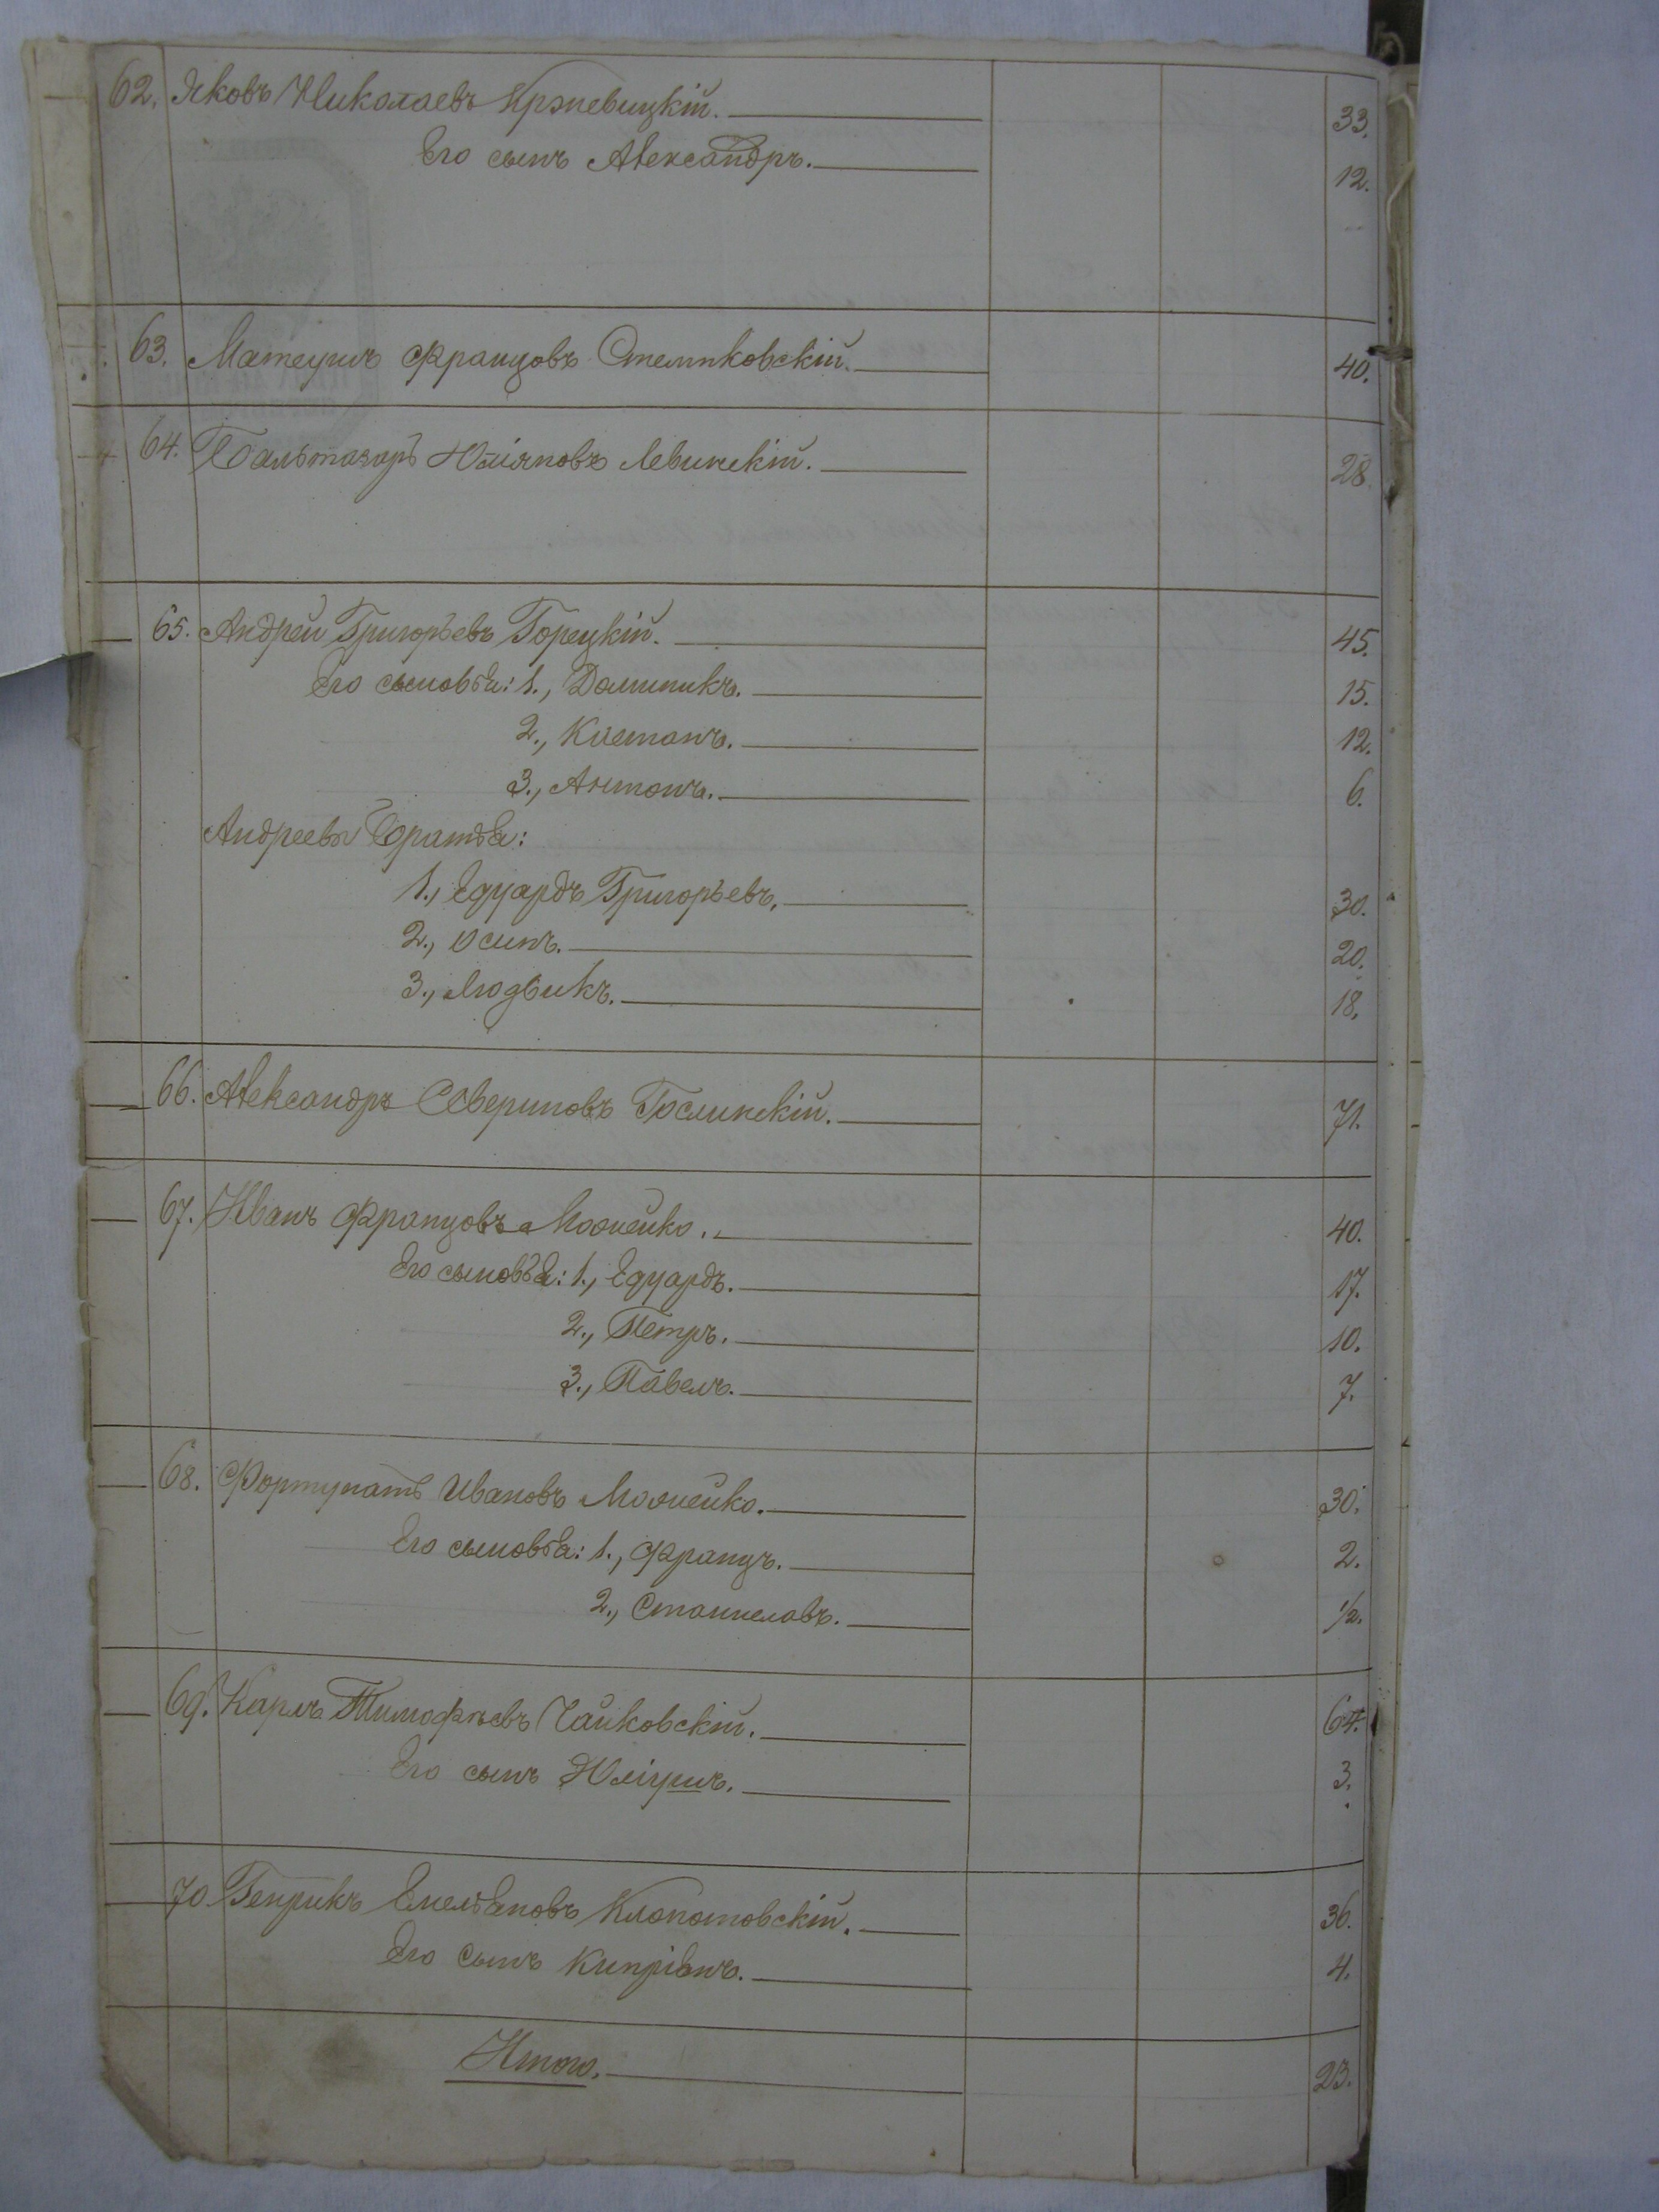 62. Яковъ Николаевъ Крэпевицкій. 33.
Его сынъ Александръ. 12.
63. Матеушъ Францовъ Стемпковскій. 40.
64. Бальтазаръ Юліяновъ Левинскій. 28.
65. Андрей Григорьевъ Горецкій. 45.
Его сыновья: 1., Доминикъ. 15.
2., Каетанъ. 12.
3., Антонъ. 6.
Андреевы братья:
1., Едуардъ Григорьевъ. 30.
2., Осипъ. 20.
3., Людвикъ. 18.
66. Александръ Севериновъ Гослинскій. 71.
67. Иванъ Францовъ 40.
Его сыновья: 1., Едуардъ. 17.
2., Петръ. 10.
3., Павелъ. 7.
68. Фортунатъ Ивановъ 30.
Его сыновья: 1., Францъ. 2.
2., Станиславъ. 1/2.
69. Карлъ Тимофѣевъ Чайковскій. 64.
Его сынъ Юліушъ. 3.
70 Генрикъ Емельяновъ Клопотовскій. 36.
Его сынъ Кипріянъ. 4.
Итого. 23.